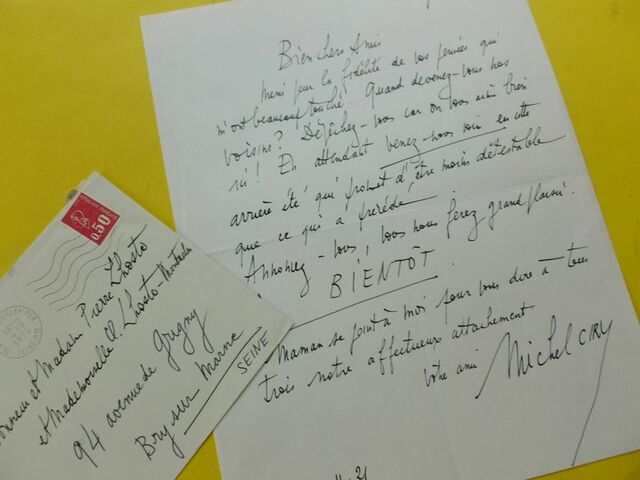 Bien chers Amis
Merci pour la fidélité de vos pensées qui
m'ont beaucoup touché. Quand devenez-vous nos
voisins? Dépêchez-vous car on vous aime bien
ici! En attendant venez-vous voir en cette
arrière été qui promet d'être moins détestable
que ce qui a précédé.
Annoncez-vous, vous nous ferez grand plaisir.
BIENTÔT
Maman se joint à moi pour vous dire à tous
trois notre affectueux attachement
Votre ami Michel CIRY
0.50
Monsieur et Madame Pierre Lhoste
et Mademoiselle O. Lhoste-
94 avenue de Grigny
Bry sur Marne
SEINE